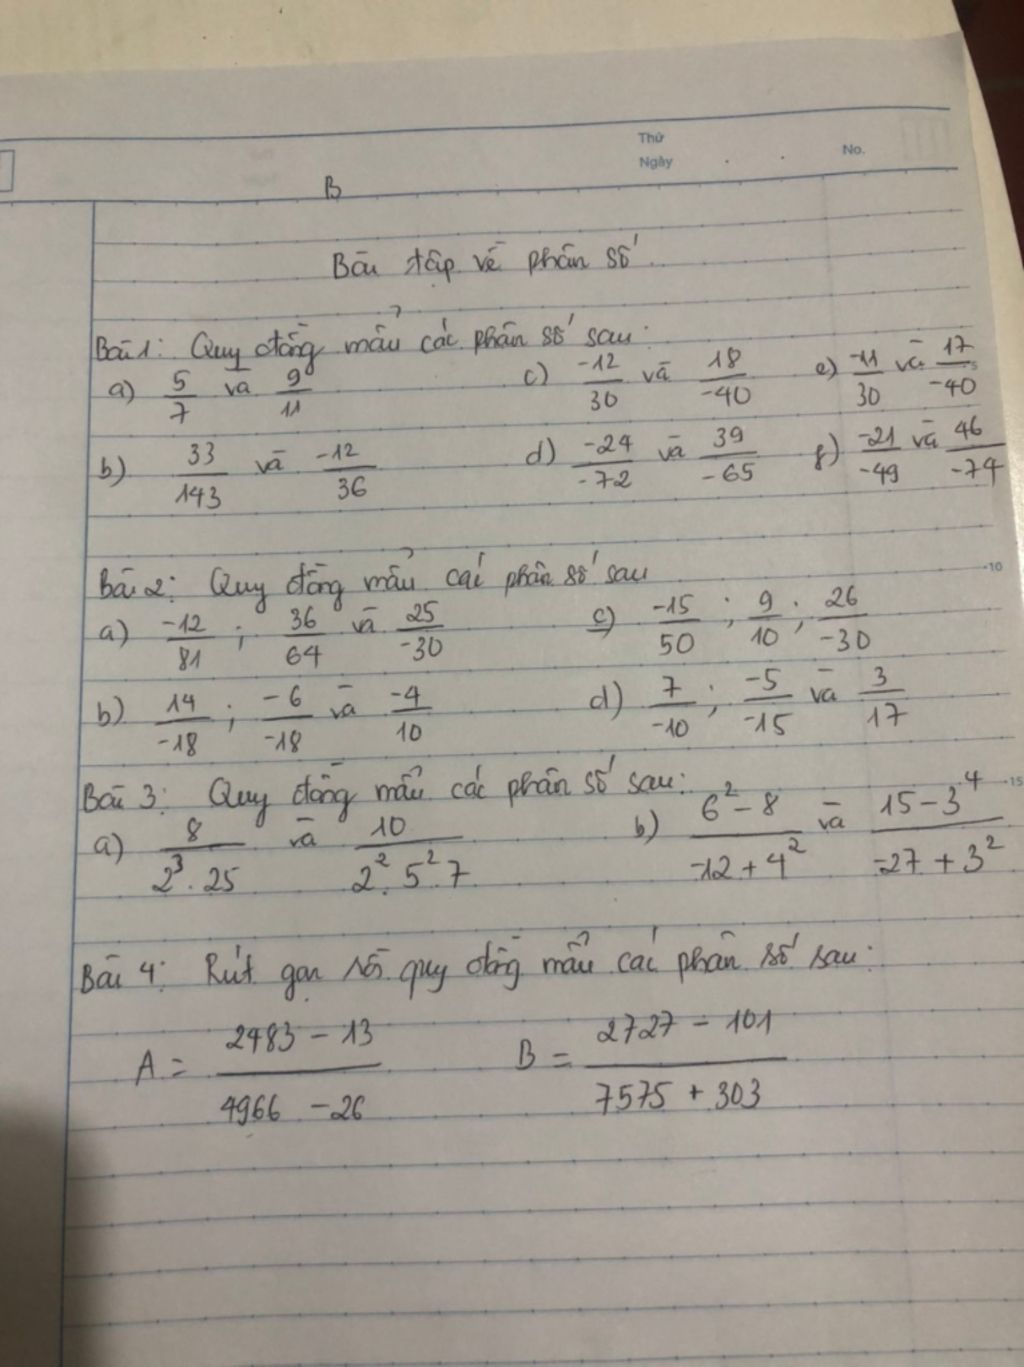 Thứ
Ngày . . No.
B
Bài tập về phân số
Bài 1: Quy đồng mẫu các phân số sau:
a) 5/7 và 9/11 c) -12/30 và 18/-40 e) -11/30 và 17/-40
b) 33/143 và -12/36 d) -24/-72 và 39/-65 f) -21/-49 và 46/-74
Bài 2: Quy đồng mẫu các phân số sau
-10
a) -12/81 ; 36/64 và 25/-30 c) -15/50 ; 9/10 ; 26/-30
b) 14/-18 ; -6/-18 và -4/10 d) 7/-10 ; -5/-15 và 3/17
Bài 3: Quy đồng mẫu các phân số sau:
-15
a) 8/2³.25 và 10/2².5².7 b) 6²-8/-12+4² và 15-3⁴/-27+3²
Bài 4: Rút gọn rồi quy đồng mẫu các phân số sau:
A = 2483-13/4966-26 B = 2727-101/7575+303